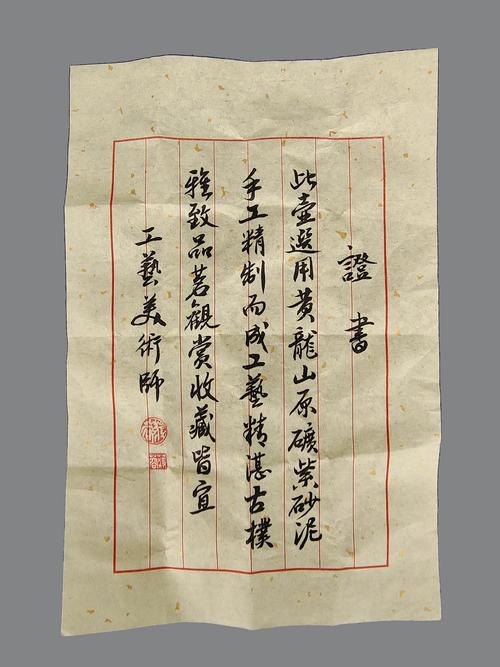 證書
此壺選用黃龍山原礦紫砂泥
手工精制而成工藝精湛古樸
雅致品茗觀賞收藏皆宜
工藝美術師